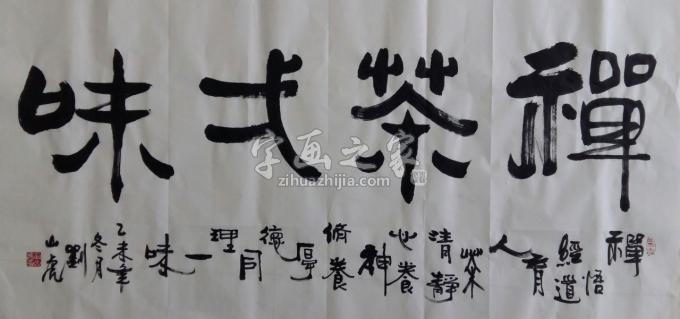 禪茶弌味
禪悟經道育人茶清靜心養神修養厚德同理一味
乙未年冬月劉山虎
字画之家
zihuazhijia.com